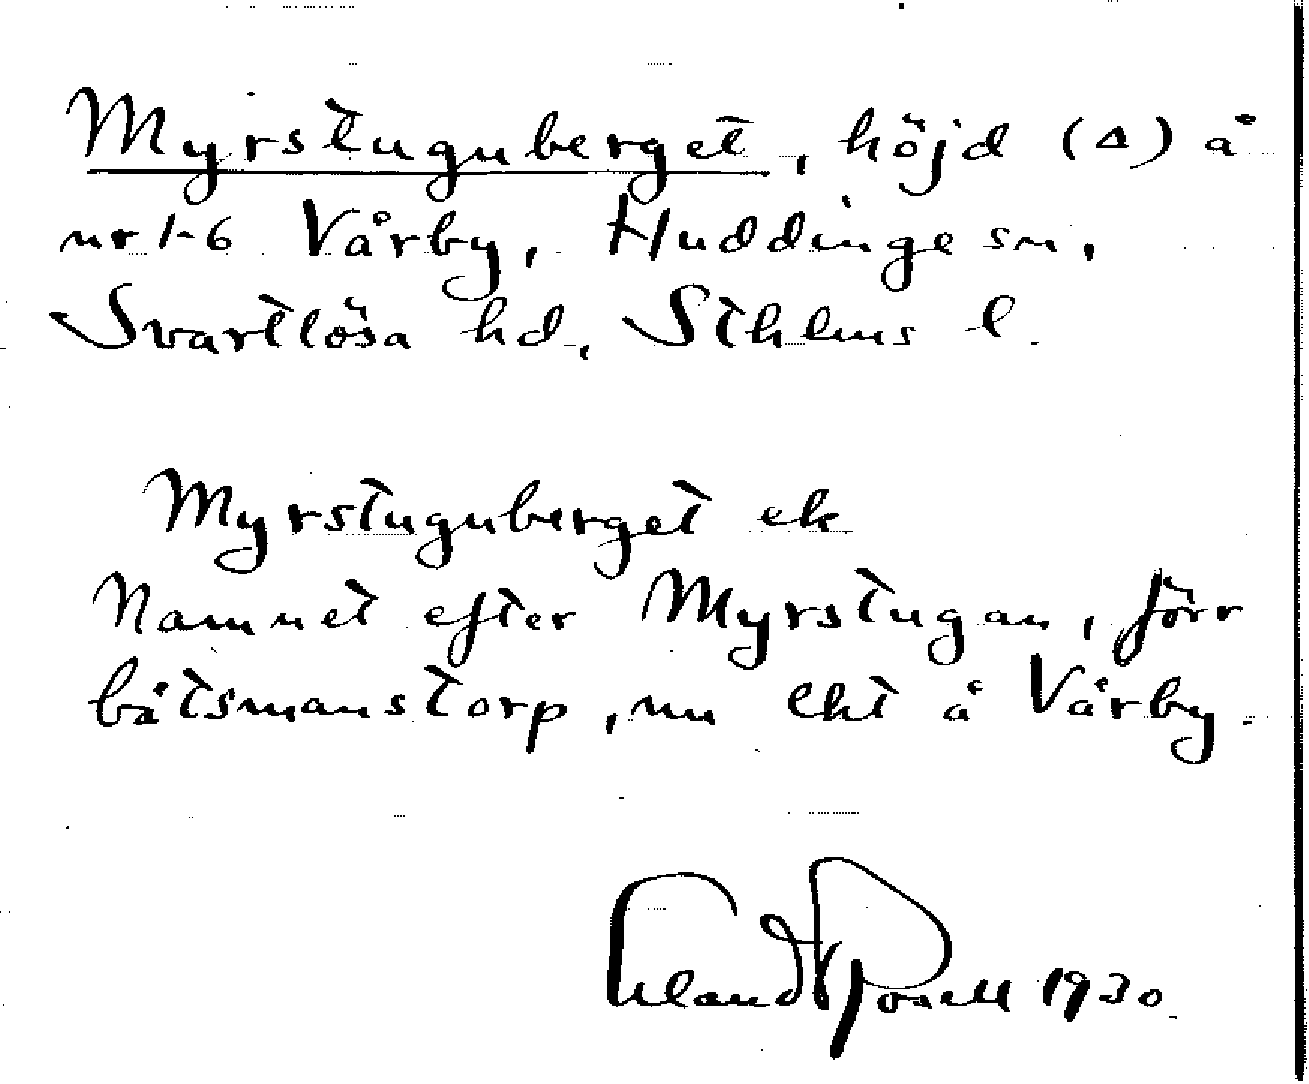 Myrstuguberget, höjd (△) å
nr 1-6 Vårby, Huddinge sn,
Svartlösa hd, Sthlms l.
Myrstuguberget ek
Namnet efter Myrstugan, förr
båtsmanstorp, nu lht å Vårby.
Erland Rosell 1930